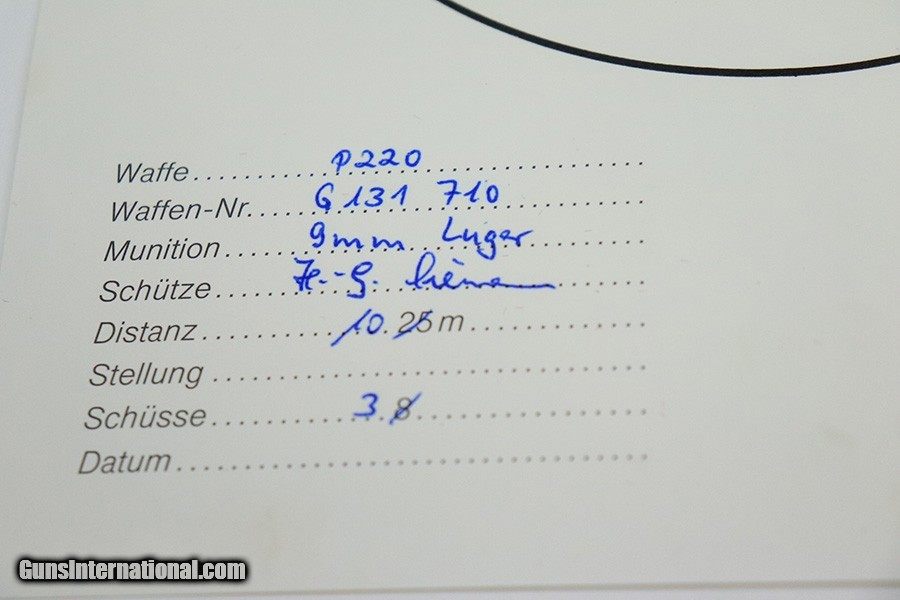 Waffe P220
Waffen-Nr. G 131 710
Munition 9mm Luger
Schütze H.-G.
Distanz 10 25 m
Stellung
Schüsse 3 8
Datum
GunsInternational.com